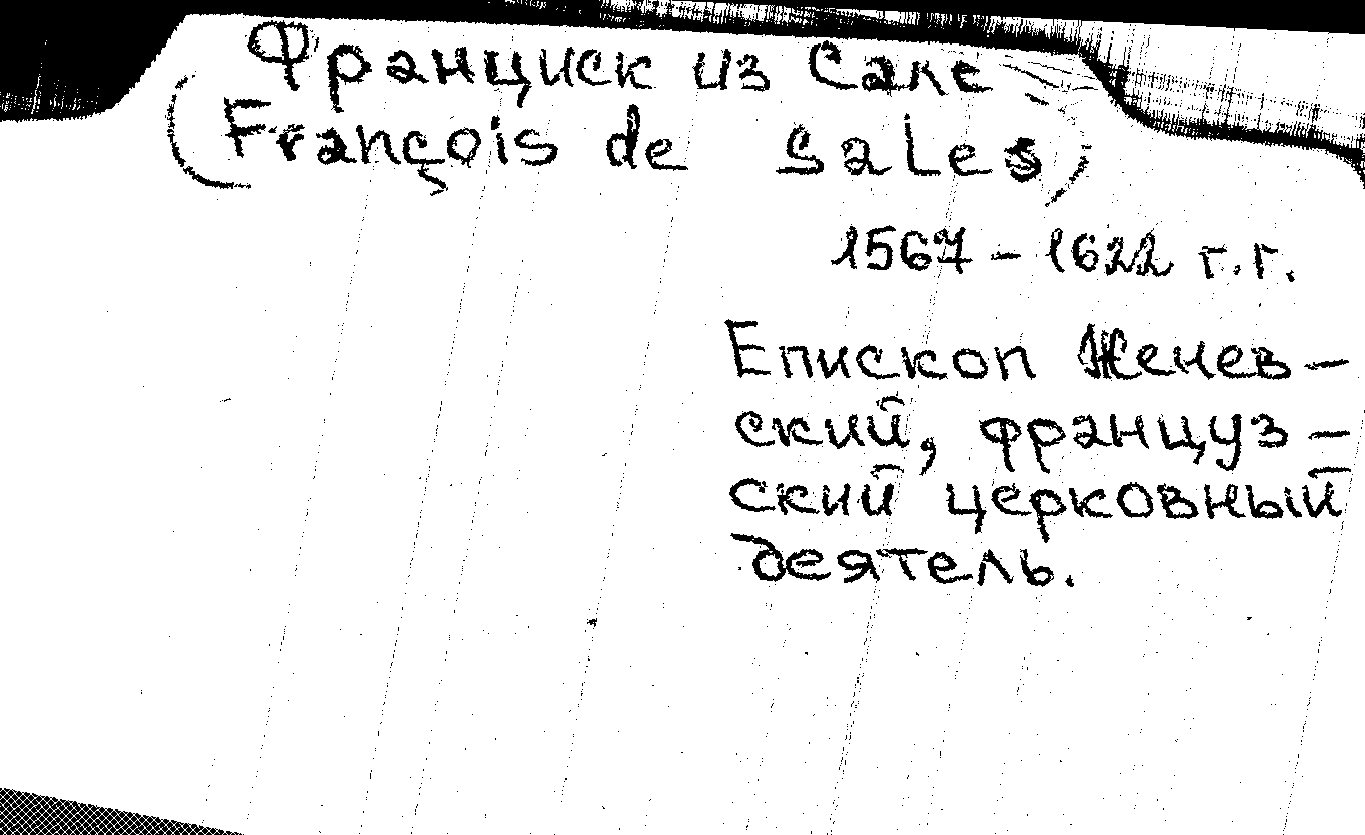 Франциск из Сале
(François de Sales)
1567 – 1622 г.г.
Епископ Женев-
ский, француз-
ский церковный
деятель.